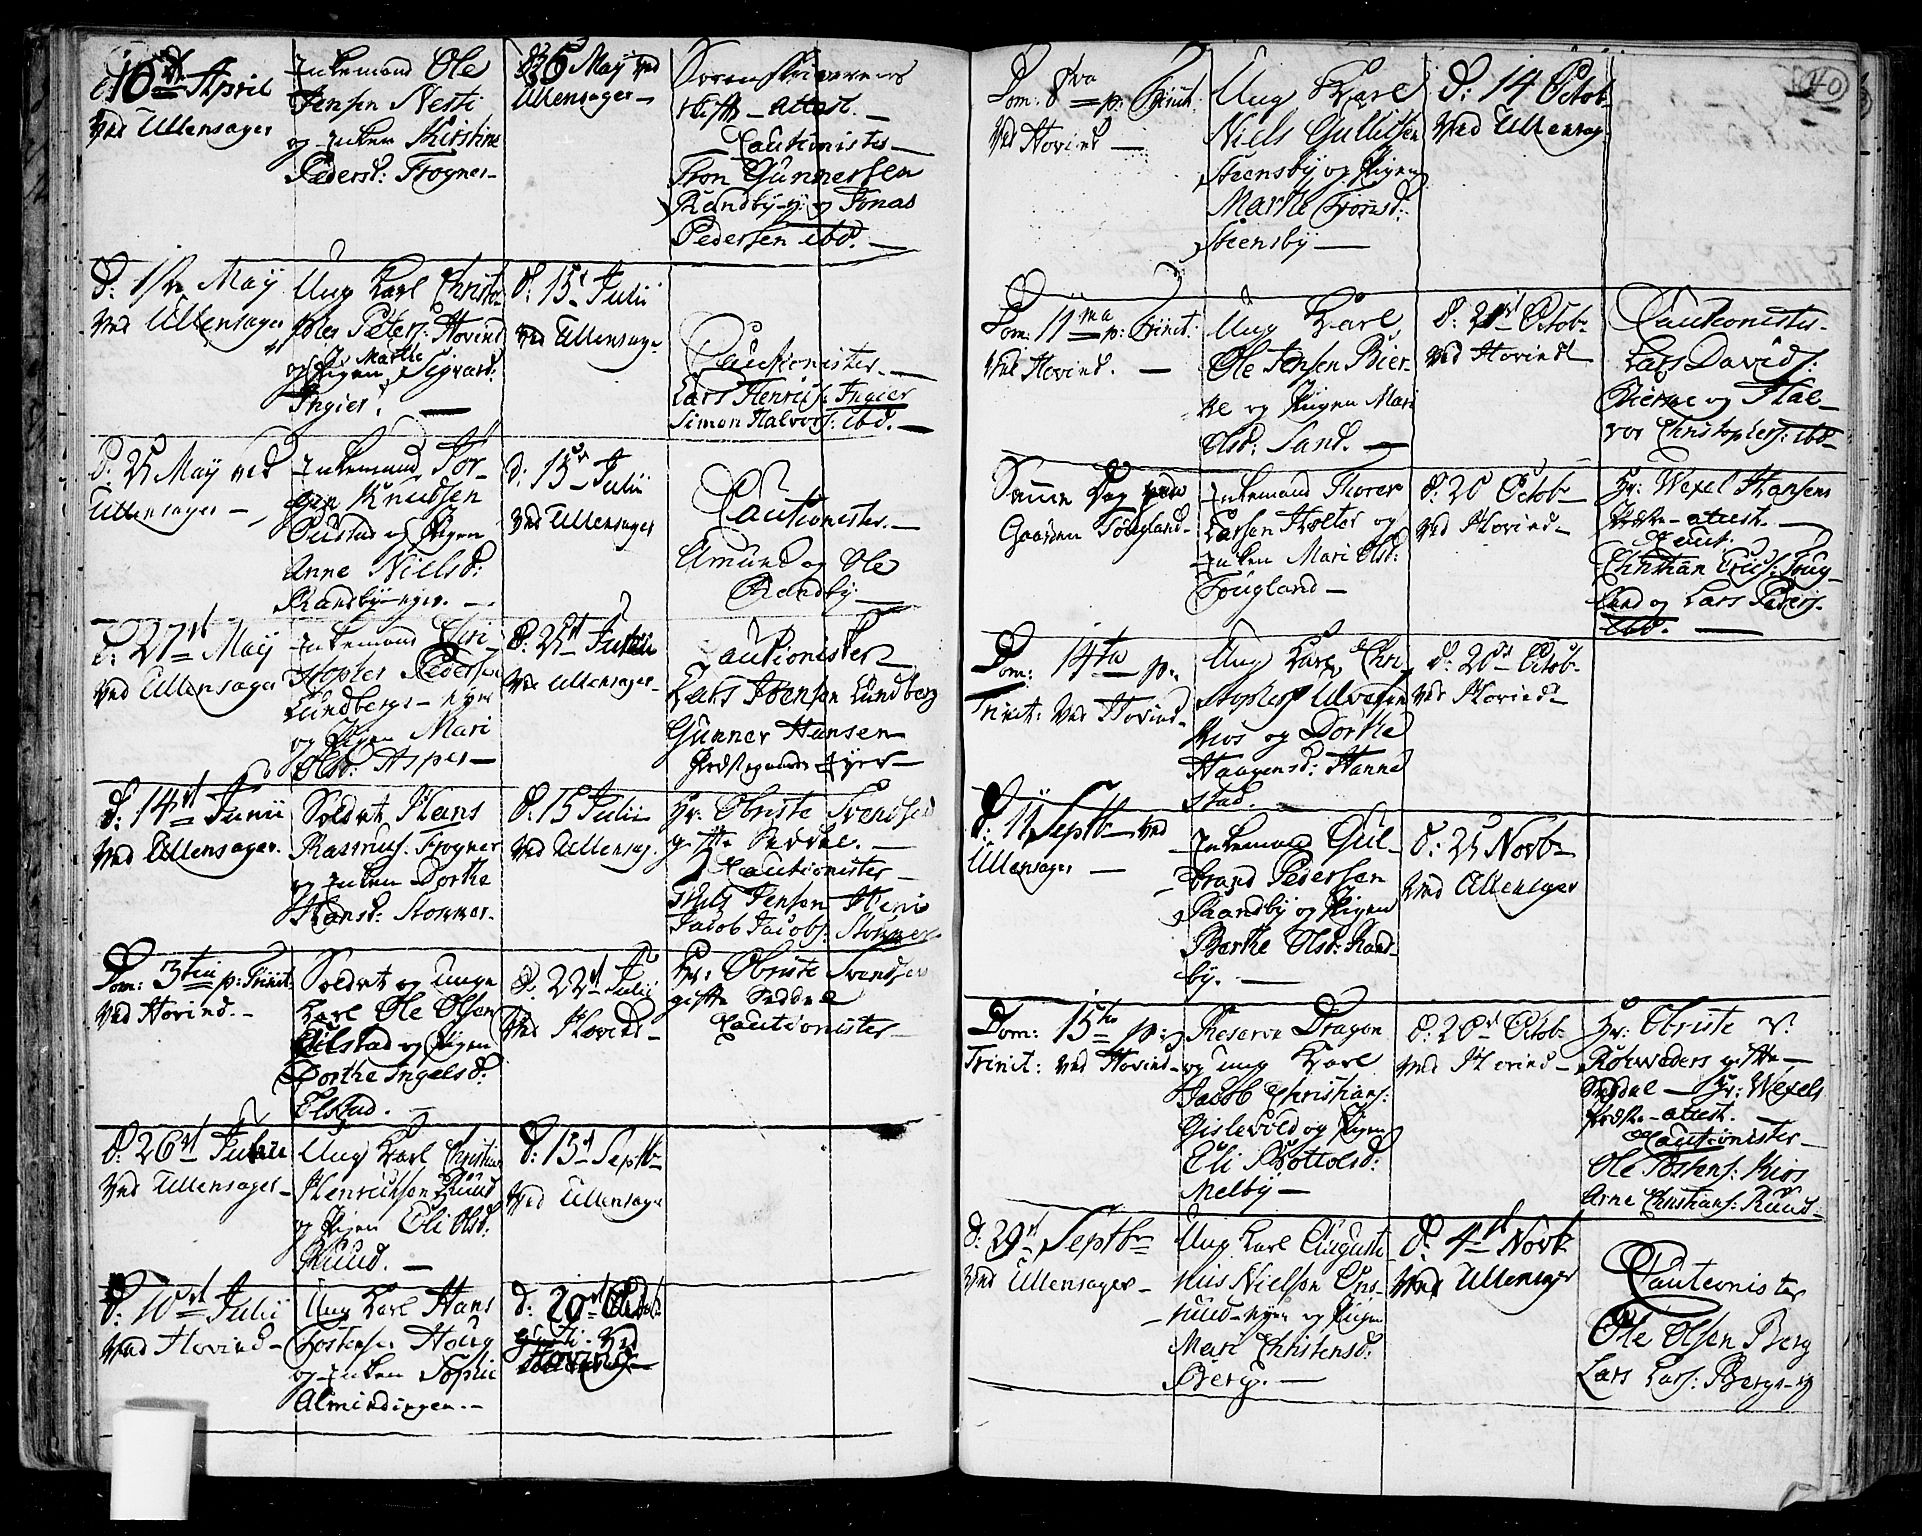 d. 16de April
ved Ullensager
Enkemand Ole
Jensen Nesti
og Enken Kirstine
Pedersd: Frogner-
d. 6 Maÿ ved
Ullensager-
Sorenskriverens
skifte-attest.-
Cautionister-
Tron Gunnersen
Randby-ej: og Jonas
Pedersen ibd.-
d: 1ste Maÿ
ved Ullensager
Ung Karl Christo-
pher Peters: Hovind
og Pigen Marthe Sigvard:
Ingier.-
d: 15de Julii
ved Ullensager
Cautionister.-
Lars Henrichs: Ingier
Simon Halvors: ibd.-
d: 25 Maÿ ved
Ullensager-
Enkemand Jör-
gen Knudsen
og Pigen
Anne Nielsd:
Randby-eyer.-
d: 15de Julii
ved Ullensager
Cautionister.-
Amund og Ole
Randby-
d: 27de Maÿ
ved Ullensager
Enkemand Chri-
stopher Pedersen
Lundbergs-eyer
og Pigen Mari
Olsd: Asper-
d: 25de Julii
ved Ullensager-
Cautionister
Lars Ibensen Lundberg
Gunner Hansen
Præstegaards Eyer-
d: 14de Junii
ved Ullensager.
Soldat Hans
Rasmus: Frogner
og Enken Dorthe
Hansd: Stommer-
d: 15 Julii
ved Ullensag.
Hr: Obriste Svendsen
gifte Seddel.-
Cautionister-
Niels Jensen
Jacob Jacobs: Stommer
Dom: 3tia p: Trinit:
ved Hovind.-
Soldat og unge
Karl Ole Olsen
Eilstad og Pigen
Dorthe Ingelsd:
Elstad.-
d: 22de Julii
ved Hovind-
Hr: Obriste Svendsen
gifte Seddel
Cautionister-
d: 26de Junii
ved Ullensager-
Ung Karl Christian
Henrichsen Ruud
og Pigen Eli Olsd:
Ruud.-
d: 15de Septb-
ved Ullensager
d: 10de Julii
ved Hovind-
Ung Karl Hans
Tostensen Houg
og Enken Sophie
Almindingen.-
d: 20de Octob:
ved
Hovind
40
Dom: 8va p: Trinit:
ved Hovind-
Ung Karl
Niels Gulbrsen
Steensby og Pigen
Marthe Tronsd:
Steensby-
d: 14 Octob-
ved Ullensag.
Dom: 11ma p: Trinit:
ved Hovind.-
Ung Karl
Ole Jensen Bier-
ke og Pigen Mari
Olsd: Sand.-
d: 21de Octob-
ved Hovind
Cautionister-
Lars Davids:
Bierke og Hal-
vor Christophers: ibd-
Samme Dag paa
Gaarden Fougland-
Enkemand Thorer
Larsen Holter og
Enken Mari Olsd:
Fougland-
d: 20 Octob-
ved Hovind-
Hr: Wexel Hansens
Præste-attest.-
Caut:
Christian Erichs: Foug-
land og Lars Peders:
ibd.-
Dom: 14ta p:
Trinit: ved Hovind-
Ung Karl Chri-
stopher Ulversen
Kios og Dorthe
Haagensd: Hanne
stad.-
d: 20de Octob-
ved Hovind-
d: 11 Septb- ved
Ullensager-
Enkemand Gul-
brand Pedersen
Raandby og Pigen
Berthe Olsd: Rand-
by.-
d: 25 Novb-
ved Ullensager
Dom: 15to p:
Trinit: ved Hovind-
Reserve Dragon
og ung Karl
Jacob Christians:
Gislevold og Pigen
Eli Bottolsd:
Melby-
d: 20de Octob-
ved Hovind-
Hr: Obriste v.
Rohweders gifte-
Seddel-Hr: Wexels
Præste-attest-
Cautionister-
Ole Tostens: Kios
Arne Christians: Ruud-
d: 29de Septbr
ved Ullensager-
Ung Karl Auguste
nus Nielsen Ons-
ruud-eyer og Pigen
Mari Christensd:
Berg.-
d: 4de Novb-
ved Ullensager
Cautionister
Ole Olsen Berg
Lars Lars: Bergs-ej